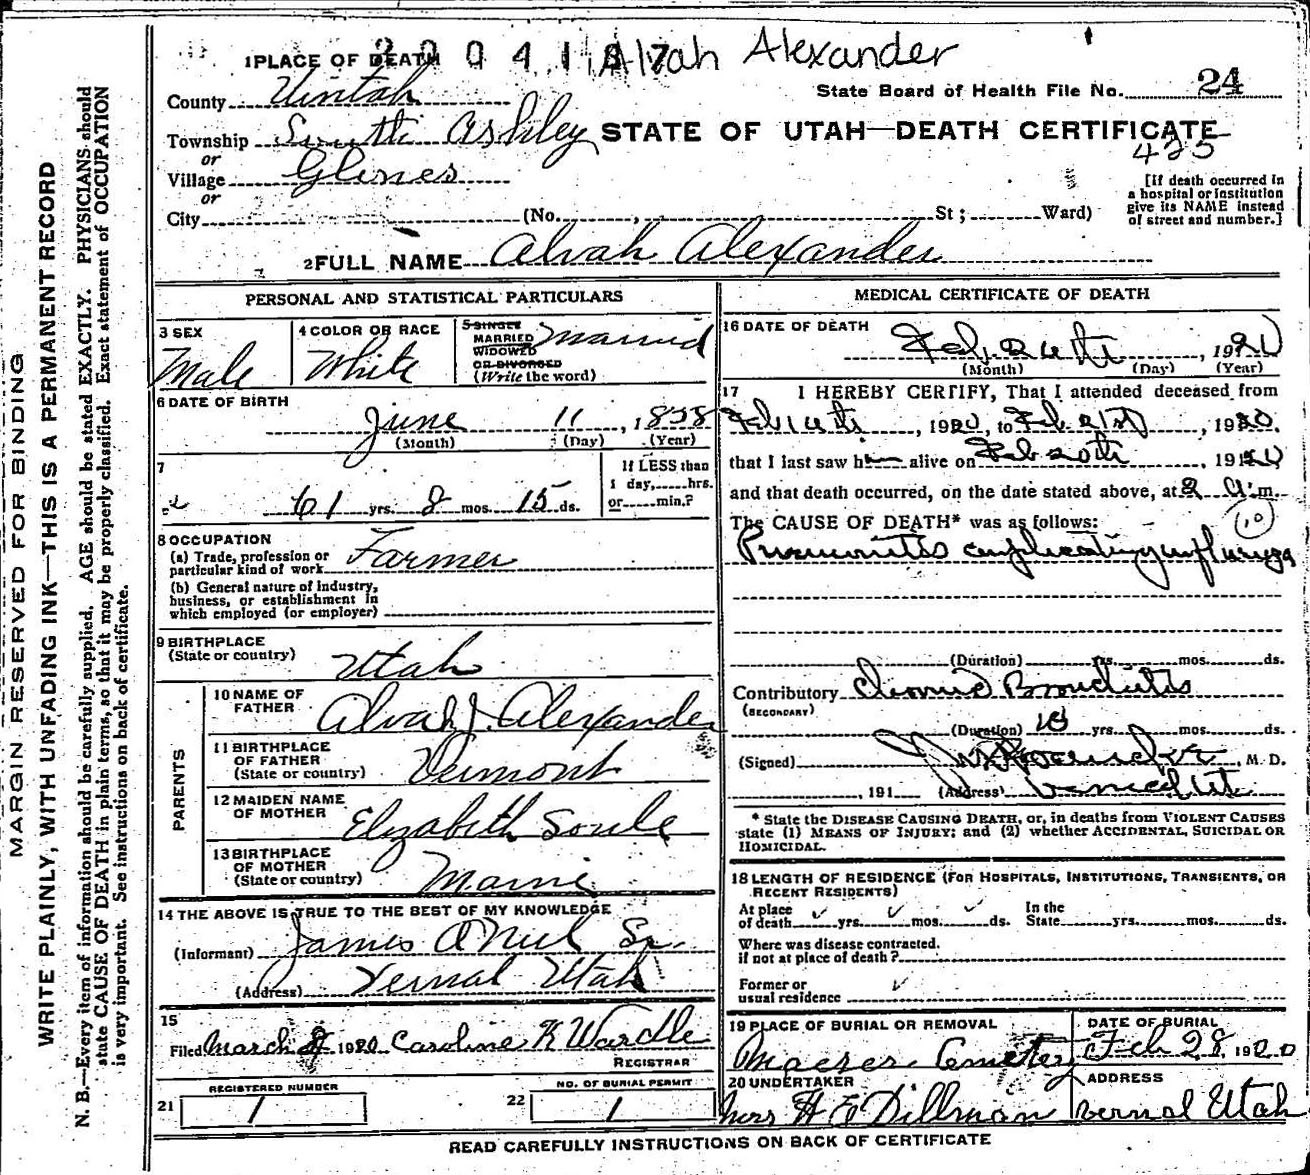 1 PLACE OF DEATH 2004187 Alvah Alexander
County Uintah State Board of Health File No. 24
Township South Ashley STATE OF UTAH—DEATH CERTIFICATE
or 425
Village Glines
or
City (No. , St; Ward)
[If death occurred in
a hospital or institution
give its NAME instead
of street and number.]
2 FULL NAME Alvah Alexander
PERSONAL AND STATISTICAL PARTICULARS
3 SEX
Male
4 COLOR OR RACE
White
5 SINGLE
MARRIED
WIDOWED
OR DIVORCED
(Write the word)
Married
6 DATE OF BIRTH
June 11, 1858
(Month) (Day) (Year)
7
61 yrs. 8 mos. 15 ds.
If LESS than
1 day, hrs.
or min.?
8 OCCUPATION
(a) Trade, profession or
particular kind of work Farmer
(b) General nature of industry,
business, or establishment in
which employed (or employer)
9 BIRTHPLACE
(State or country) Utah
PARENTS
10 NAME OF
FATHER Alvah J. Alexander
11 BIRTHPLACE
OF FATHER
(State or country) Vermont
12 MAIDEN NAME
OF MOTHER Elizabeth Soule
13 BIRTHPLACE
OF MOTHER
(State or country) Maine
14 THE ABOVE IS TRUE TO THE BEST OF MY KNOWLEDGE
(Informant) James ONeil Sr.
(Address) Vernal Utah
15
Filed March 1920 Caroline K Wardle
REGISTRAR
REGISTERED NUMBER
21 1
NO. OF BURIAL PERMIT
22 1
MEDICAL CERTIFICATE OF DEATH
16 DATE OF DEATH
Feb. , 1920
(Month) (Day) (Year)
17 I HEREBY CERTIFY, That I attended deceased from
Feb , 1920, to Feb 21st, 1920,
that I last saw h alive on Feb 20th, 1920
and that death occurred, on the date stated above, at 2 a.m.
The CAUSE OF DEATH* was as follows: (10)
Pneumonitis complicating influenza
(Duration) yrs. mos. ds.
Contributory Chronic Bronchitis
(SECONDARY)
(Duration) 10 yrs. mos. ds.
(Signed) , M. D.
, 191 (Address) Vernal Ut
* State the DISEASE CAUSING DEATH, or, in deaths from VIOLENT CAUSES
state (1) MEANS OF INJURY; and (2) whether ACCIDENTAL, SUICIDAL OR
HOMICIDAL.
18 LENGTH OF RESIDENCE (FOR HOSPITALS, INSTITUTIONS, TRANSIENTS, OR
RECENT RESIDENTS)
At place In the
of death yrs. mos. ds. State yrs. mos. ds.
Where was disease contracted.
if not at place of death?
Former or
usual residence
19 PLACE OF BURIAL OR REMOVAL
Maeser Cemetery
DATE OF BURIAL
Feb 28, 1920
20 UNDERTAKER
Mrs H E Dillman
ADDRESS
Vernal Utah
READ CAREFULLY INSTRUCTIONS ON BACK OF CERTIFICATE
MARGIN RESERVED FOR BINDING
WRITE PLAINLY, WITH UNFADING INK—THIS IS A PERMANENT RECORD
N. B.—Every item of information should be carefully supplied. AGE should be stated EXACTLY. PHYSICIANS should
state CAUSE OF DEATH in plain terms, so that it may be properly classified. Exact statement of OCCUPATION
is very important. See instructions on back of certificate.